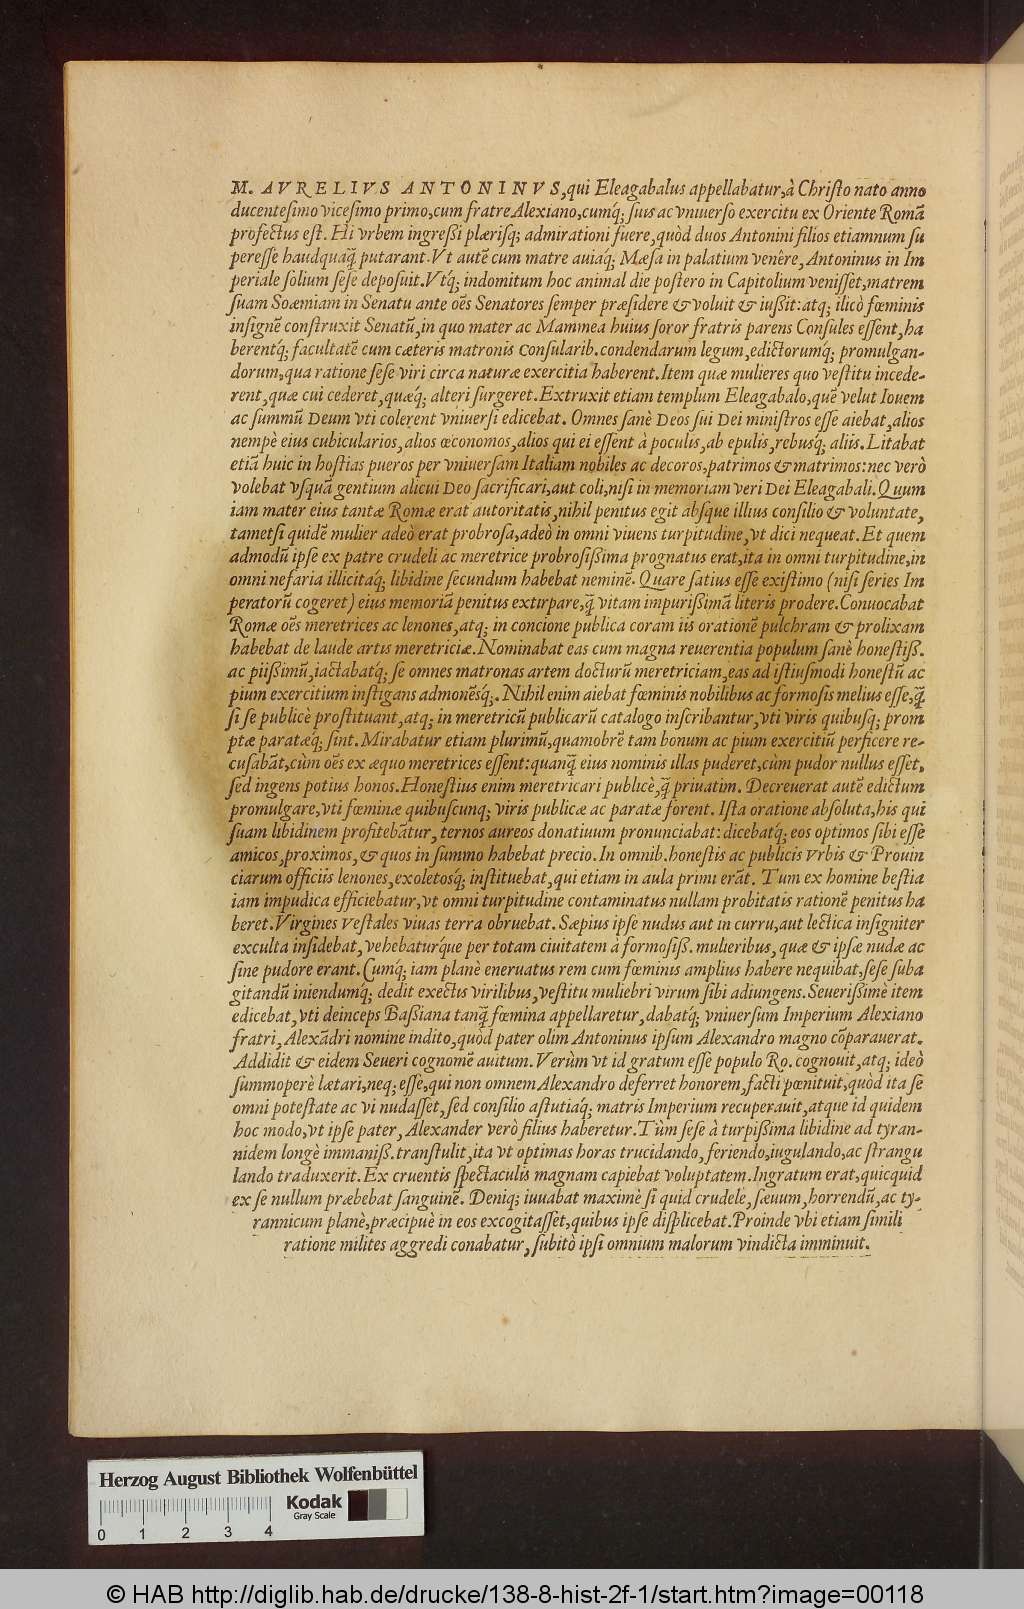 M. AVRELIVS ANTONINVS, qui Eleagabalus appellabatur, à Christo nato anno
ducentesimo vicesimo primo, cum fratre Alexiano, cumq́; suis ac vniuerso exercitu ex Oriente Romã
profectus est. Hi vrbem ingreßi plærisq; admirationi fuere, quòd duos Antonini filios etiamnum su
peresse haudquaq̃ putarant. Vt autẽ cum matre auiaq; Mæsa in palatium venêre, Antoninus in Im
periale solium sese deposuit. Vtq́; indomitum hoc animal die postero in Capitolium venisset, matrem
suam Soæmiam in Senatu ante oẽs Senatores semper præsidere & voluit & iußit: atq; ilicò fœminis
insignẽ construxit Senatũ, in quo mater ac Mammea huius soror fratris parens Consules essent, ha
berentq; facultatẽ cum cæteris matronis Consularib. condendarum legum, edictorumq́; promulgan-
dorum, qua ratione sese viri circa naturæ exercitia haberent. Item quæ mulieres quo vestitu incede-
rent, quæ cui cederet, quæq́; alteri surgeret. Extruxit etiam templum Eleagabalo, quẽ velut Iouem
ac summũ Deum vti colerent vniuersi edicebat. Omnes sanè Deos sui Dei ministros esse aiebat, alios
nempè eius cubicularios, alios œconomos, alios qui ei essent à poculis, ab epulis, rebusq́; aliis. Litabat
etiã huic in hostias pueros per vniuersam Italiam nobiles ac decoros, patrimos & matrimos: nec verò
volebat vsquã gentium alicui Deo sacrificari, aut coli, nisi in memoriam veri Dei Eleagabali. Quum
iam mater eius tantæ Romæ erat autoritatis, nihil penitus egit absque illius consilio & voluntate,
tametsi quidẽ mulier adeò erat probrosa, adeò in omni viuens turpitudine, vt dici nequeat. Et quem
admodũ ipse ex patre crudeli ac meretrice probrosißima prognatus erat, ita in omni turpitudine, in
omni nefaria illicitaq́; libidine secundum habebat neminẽ. Quare satius esse existimo (nisi series Im
peratorũ cogeret) eius memoriã penitus extirpare, q̃ vitam impurißimã literis prodere. Conuocabat
Romæ oẽs meretrices ac lenones, atq; in concione publica coram iis orationẽ pulchram & prolixam
habebat de laude artis meretriciæ. Nominabat eas cum magna reuerentia populum sanè honestiß.
ac piißimũ, iactabatq́; se omnes matronas artem docturũ meretriciam, eas ad istiusmodi honestũ ac
pium exercitium instigans admonẽsq́;. Nihil enim aiebat fœminis nobilibus ac formosis melius esse, q̃
si se publicè prostituant, atq; in meretricũ publicarũ catalogo inscribantur, vti viris quibusq; prom
ptæ paratæq́; sint. Mirabatur etiam plurimũ, quamobrẽ tam bonum ac pium exercitiũ perficere re-
cusabãt, cùm oẽs ex æquo meretrices essent: quanq̃ eius nominis illas puderet, cùm pudor nullus esset,
sed ingens potius honos. Honestius enim meretricari publicè, q̃ priuatim. Decreuerat autẽ edictum
promulgare, vti fœminæ quibuscunq; viris publicæ ac paratæ forent. Ista oratione absoluta, his qui
suam libidinem profitebãtur, ternos aureos donatiuum pronunciabat: dicebatq́; eos optimos sibi esse
amicos, proximos, & quos in summo habebat precio. In omnib. honestis ac publicis Vrbis & Prouin
ciarum officiis lenones, exoletosq́; instituebat, qui etiam in aula primi erãt. Tum ex homine bestia
iam impudica efficiebatur, vt omni turpitudine contaminatus nullam probitatis rationẽ penitus ha
beret. Virgines Vestales viuas terra obruebat. Sæpius ipse nudus aut in curru, aut lectica insigniter
exculta insidebat, vehebaturq́ue per totam ciuitatem à formosiß. mulieribus, quæ & ipsæ nudæ ac
sine pudore erant. Cumq́; iam planè eneruatus rem cum fœminis amplius habere nequibat, sese suba
gitandũ iniendumq́; dedit exectis virilibus, vestitu muliebri virum sibi adiungens. Seuerißimè item
edicebat, vti deinceps Baßiana tanq̃ fœmina appellaretur, dabatq́; vniuersum Imperium Alexiano
fratri, Alexãdri nomine indito, quòd pater olim Antoninus ipsum Alexandro magno cõparauerat.
Addidit & eidem Seueri cognomẽ auitum. Verùm vt id gratum esse populo Ro. cognouit, atq; ideò
summoperè lætari, neq; esse, qui non omnem Alexandro deferret honorem, facti pœnituit, quòd ita se
omni potestate ac vi nudasset, sed consilio astutiaq́; matris Imperium recuperauit, atque id quidem
hoc modo, vt ipse pater, Alexander verò filius haberetur. Tùm sese à turpißima libidine ad tyran-
nidem longè immaniß. transtulit, ita vt optimas horas trucidando, feriendo, iugulando, ac strangu
lando traduxerit. Ex cruentis spectaculis magnam capiebat voluptatem. Ingratum erat, quicquid
ex se nullum præbebat sanguinẽ. Deniq; iuuabat maximè si quid crudele, sæuum, horrendũ, ac ty-
rannicum planè, præcipuè in eos excogitasset, quibus ipse displicebat. Proinde vbi etiam simili
ratione milites aggredi conabatur, subitò ipsi omnium malorum vindicta imminuit.
Herzog August Bibliothek Wolfenbüttel
Kodak
Gray Scale
0 1 2 3 4
© HAB http://diglib.hab.de/drucke/138-8-hist-2f-1/start.htm?image=00118